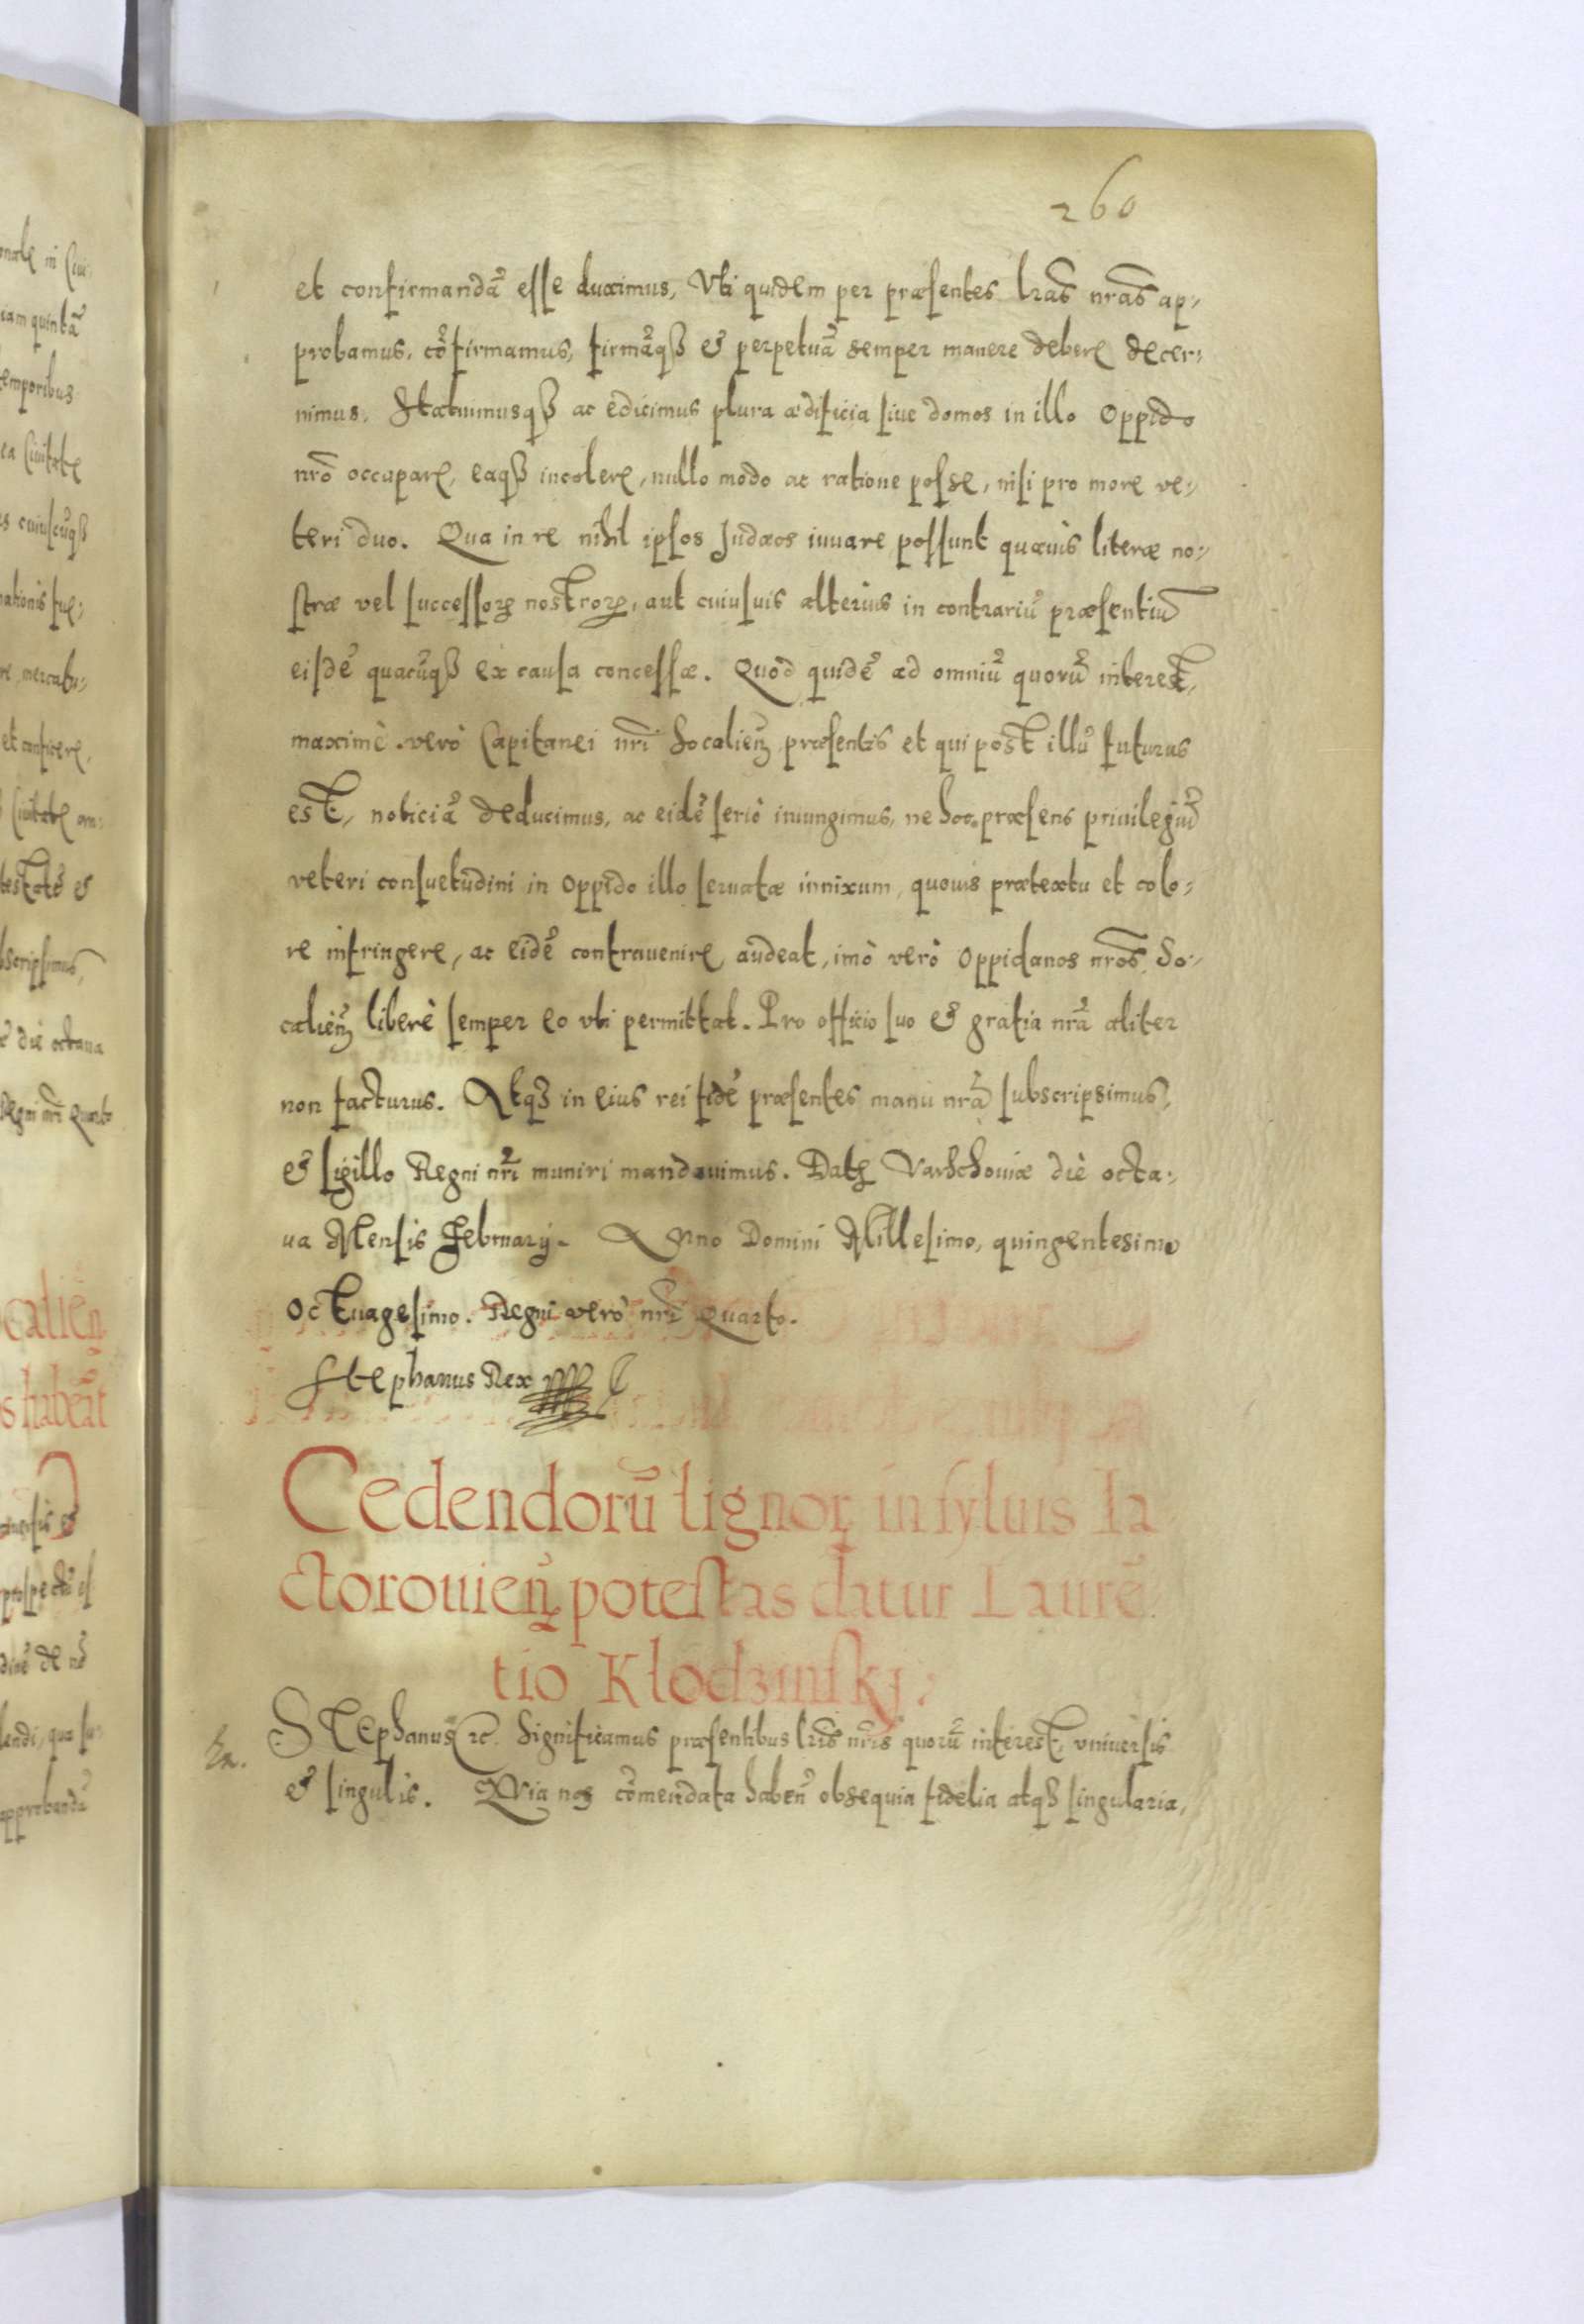 260
et confirmandã esse duximus, Vti quidem per præsentes lrãs nrãs ap-
probamus, cõfirmamus, firmãqꝫ & perpetuã semper manere debere decer-
nimus. Statuimusqꝫ ac edicimus plura ædificia siue domos in illo Oppido
nrõ occupare, eaqꝫ incolere, nullo modo ac ratione posse, nisi pro more ve-
teri duo. Qua in re nihil ipsos Judæos iuuare possunt quæuis literæ no-
stræ vel successorꝝ nostrorꝝ, aut cuiusuis alterius in contrariũ præsentiũ
eisdẽ quacũqꝫ ex causa concessæ. Quod quidẽ ad omniũ quorũ interest,
maximè verò Capitanei nrĩ Socalieñ præsentis et qui post illũ futurus
est, noticiã deducimus, ac eidẽ seriò iniungimus, ne hoc præsens priuilegiũ
veteri consuetudini in Oppido illo seruatæ innixum, quouis prætextu et colo-
re infringere, ac eidẽ contrauenire audeat, imò verò Oppidanos nrõs So-
calieñ liberè semper eo vti permittat. Pro officio suo & gratia nrã aliter
non facturus. Atqꝫ in eius rei fidẽ præsentes manu nrã subscripsimus,
& sigillo Regni nrĩ muniri mandauimus. Datꝭ Varschouiæ die octa-
ua Mensis February. Anno Domini Millesimo, quingentesimo
Octuagesimo. Regni verò nrĩ Quarto.
Stephanus Rex
Cedendorũ lignorꝝ in syluis Ia
ctorouieñ potestas datur Laurẽ
tio Kłodzinskj.
Stephanus ꝛc. Significamus præsentibus lrĩs nrĩs quorũ interest, vniuersis
& singulis. Quia nos cõmendata habeñ obsequia fidelia atqꝫ singularia,